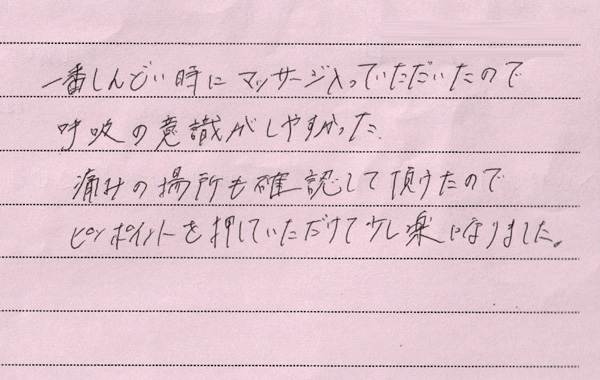 一番しんどい時にマッサージ入っていただいたので
呼吸の意識がしやすかった.
痛みの場所も確認して頂けたので
ピンポイントを押していただけて少し楽になりました。